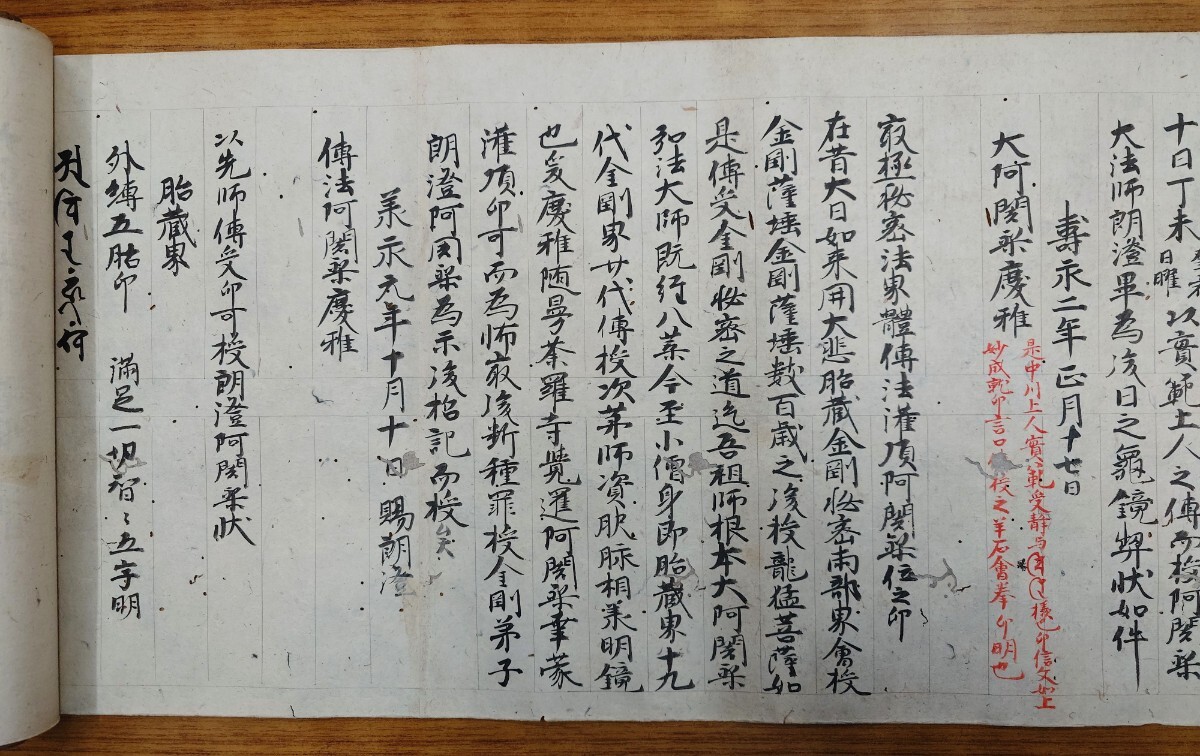 十日丁未 日曜 以實範上人之傳而授阿闍梨
大法師朗澄畢為後日之龜鏡弊状如件
壽永二年正月十七日
大阿闍梨慶雅
是中川上人實範受静与 様也印信文如上
妙成就印言口 授之羊石會拳印明也
最極秘密法界體傳法灌頂阿闍梨位之印
在昔大日如来開大悲胎蔵金剛秘密両部界會授
金剛薩埵金剛薩埵数百歳之後授龍猛菩薩如
是傳受金剛秘密之道迄吾祖師根本大阿闍梨
弘法大師既経八葉今至小僧身即胎蔵界十九
代金剛界廿代傳授次第師資胑脉相葉明鏡
也爰慶雅随曼荼羅寺覺邏阿闍梨幸蒙
灌頂印可而為怖最後断種罪授金剛弟子
朗澄阿闍梨為示後招記而授矣
承永元年十月十日賜朗澄
傳法阿闍梨慶雅
以先師傳受印可授朗澄阿闍梨状
胎蔵界
外縛五肹印 満足一切智々五字明